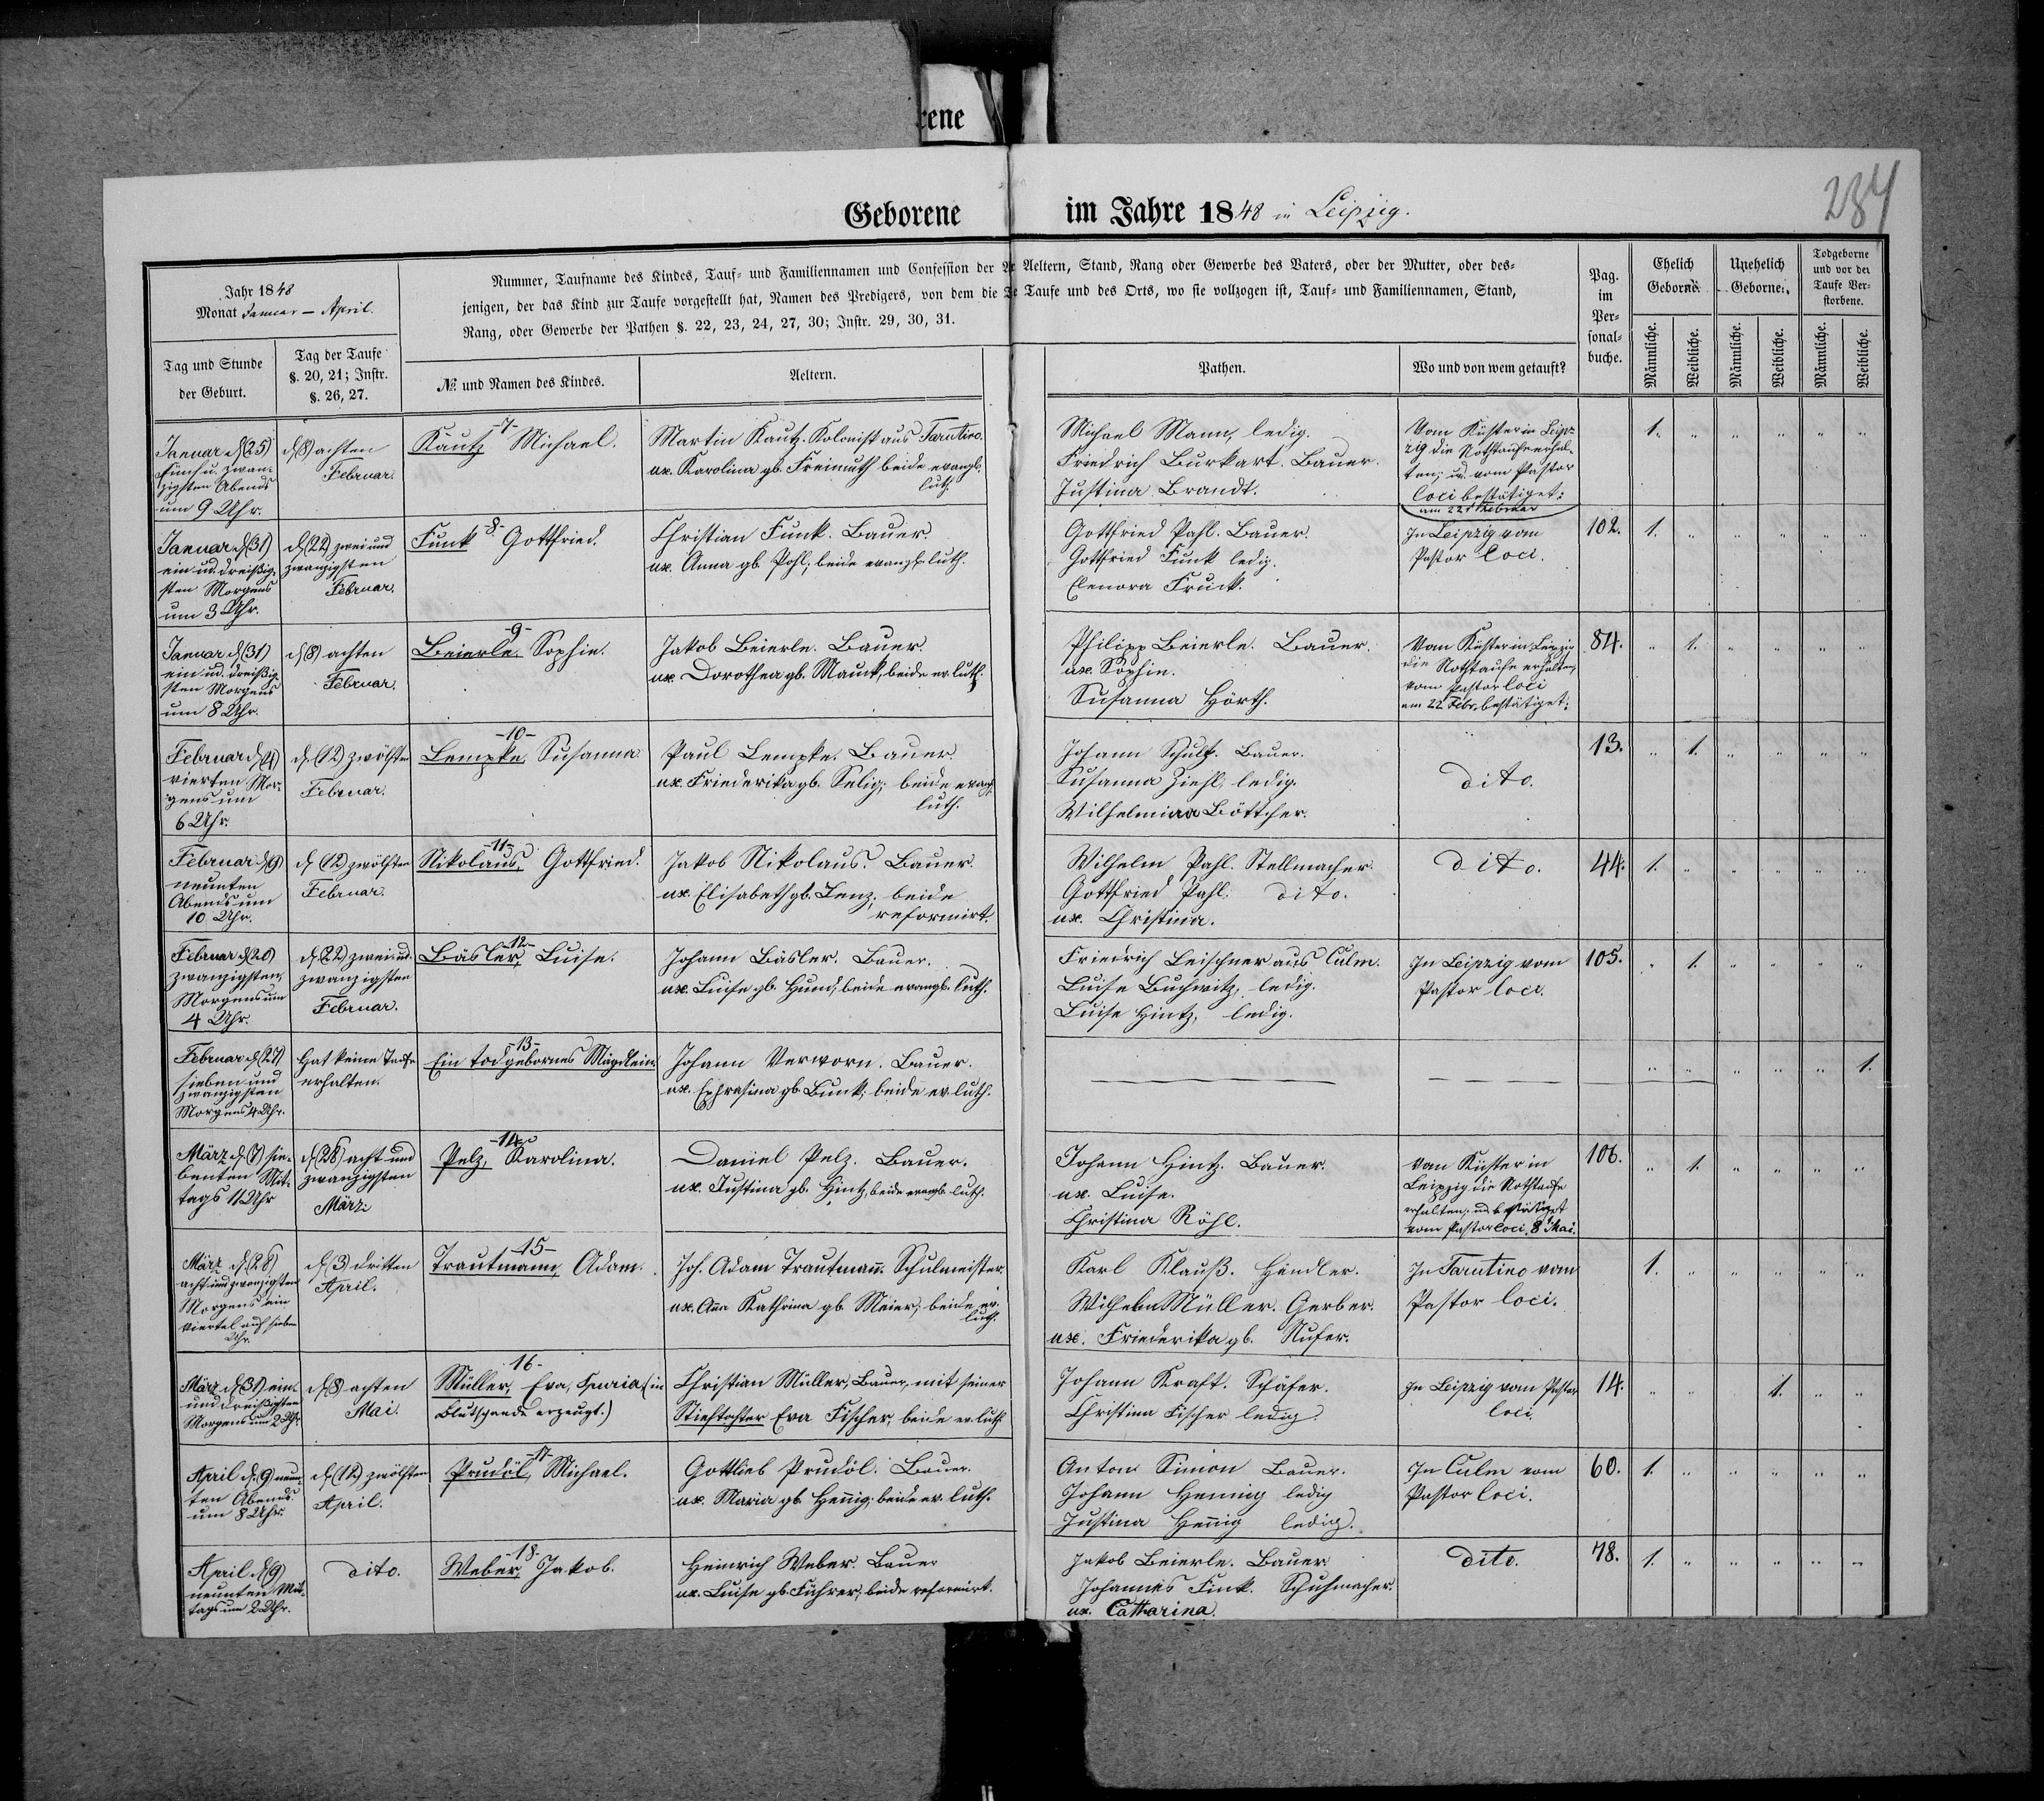 rene
Geborene im Jahre 1848 in Leipzig.
284
Jahr 1848
Monat Januar – April.
Nummer, Taufname des Kindes, Tauf- und Familiennamen und Confession der Aeltern, Stand, Rang oder Gewerbe des Vaters, oder der Mutter, oder des-
jenigen, der das Kind zur Taufe vorgestellt hat, Namen des Predigers, von dem die Taufe und des Orts, wo sie vollzogen ist, Tauf- und Familiennamen, Stand,
Rang, oder Gewerbe der Pathen §. 22, 23, 24, 27, 30; Instr. 29, 30, 31.
Pag.
im
Per-
sonal-
buche.
Ehelich
Geborne.
Unehelich
Geborne.
Todgeborne
und vor der
Taufe Ver-
storbene.
Tag und Stunde
der Geburt.
Tag der Taufe
§. 20, 21; Instr.
§. 26, 27.
№ und Namen des Kindes.
Aeltern.
Pathen.
Wo und von wem getauft?
Männliche.
Weibliche.
Männliche.
Weibliche.
Männliche.
Weibliche.
Januar d. (25)
fünf u. zwan-
zigsten Abends
um 9 Uhr.
d. (8) achten
Februar.
-7-
Kautz Michael.
Martin Kautz. Kolonist aus Tarutino.
ux. Karolina gb. Freimuth beide evangl.
luth.
Michael Mann, ledig.
Friedrich Burkart. Bauer.
Justina Brandt.
Vom Küster in Leip-
zig die Nothtaufe erhal-
ten; u. vom Pastor
loci bestätiget:
am 22t Februar
1. " " " " "
Januar d. (31)
ein ud. dreißig-
sten Morgens
um 3 Uhr.
d. (22) zwei und
zwanzigsten
Februar.
-8-
Funk Gottfried.
Christian Funk. Bauer.
ux. Anna gb. Pohl; beide evangl. luth.
Gottfried Pahl. Bauer.
Gottfried Funk ledig.
Elenora Fruck.
In Leipzig vom
Pastor loci.
102. 1. " " " " "
Januar d. (31)
ein ud. dreißig-
sten Morgens
um 8 Uhr.
d. (8) achten
Februar.
-9-
Beierle Sophie.
Jakob Beierle. Bauer.
ux. Dorothea gb. Mauch, beide ev. luth.
Philipp Beierle. Bauer.
ux. Sophie.
Susanna Hörth.
Vom Küster in Leipzig
die Nothtaufe erhalten,
vom Pastor loci
am 22 Febr. bestätiget:
84. " 1. " " " "
Februar d. (4)
vierten Mor-
gens um
6 Uhr.
d. (12) zwölften
Februar.
-10-
Lempke, Susanna
Paul Lempke. Bauer.
ux. Friederika gb. Selig; beide evang.
luth.
Johann Schulz. Bauer.
Susanna Ziehl, ledig.
Wilhelmina Böttcher.
dito.
13. " 1. " " " "
Februar d. (9)
neunten
Abends um
10 Uhr.
d. (12) zwölften
Februar.
-11-
Nikolaus, Gottfried.
Jakob Nikolaus. Bauer.
ux. Elisabeth gb. Lenz; beide
reformirt.
Wilhelm Pahl. Stellmacher.
Gottfried Pahl. dito.
ux. Christina.
dito.
44. 1. " " " " "
Februar d. (20)
zwanzigsten,
Morgens um
4 Uhr.
d. (22) zwei ud.
zwanzigsten
Februar.
-12-
Bäsler, Luise.
Johann Bäsler. Bauer.
ux. Luise gb. Hund; beide evangl. luth.
Friedrich Leischner aus Culm.
Luise Buchwitz, ledig.
Luise Hintz, ledig.
In Leipzig vom
Pastor loci.
105. " 1. " " " "
Februar d. (27)
sieben und
zwanzigsten
Morgens 4 Uhr.
Hat keine Taufe
erhalten.
-13-
Ein todgebornes Mägdlein.
Johann Verworn. Bauer.
ux. Ephrasina gb. Bunk; beide ev. luth.
" " " " " 1.
März d. (7) sie-
benten Mit-
tags 11 Uhr
d. (28) acht und
zwanzigsten
März.
-14-
Pelz, Karolina.
Daniel Pelz. Bauer.
ux. Justina gb. Hintz, beide evangl. luth.
Johann Hintz. Bauer.
ux. Luise.
Christina Röhl.
vom Küster in
Leipzig die Nothtaufe
erhalten; ud. bestätiget
vom Pastor loci. 8 Mai.
106. " 1. " " " "
März d. (28)
acht und zwanzigsten
Morgens ein
viertel auf sieben
Uhr.
d. (3) dritten
April.
-15-
Trautmann, Adam.
Joh. Adam Trautmann. Schulmeister.
ux. Anna Kathrina gb. Meier; beide ev.
luth.
Karl Klauß. Händler.
Wilhelm Müller. Gerber.
ux. Friederika gb. Nufer.
In Tarutino vom
Pastor loci.
1. " " " " "
März d. (31) ein
und dreißigsten
Morgens um 2 Uhr.
d. (8) achten
Mai.
-16-
Müller, Eva, Spuria, (in
Blutschande erzeugt.)
Christian Müller, Bauer, mit seiner
Stieftochter Eva Fischer, beide ev. luth.
Johann Kraft. Schäfer.
Christina Fischer ledig.
In Leipzig vom Pastor
loci.
14. " " " 1. " "
April d. (9) neun-
ten Abends
um 8 Uhr.
d. (12) zwölften
April.
-17-
Prudöl, Michael.
Gottlieb Prudöl. Bauer.
ux. Maria gb. Hennig; beide ev. luth.
Anton Simon Bauer.
Johann Hennig ledig
Justina Hennig ledig.
In Culm vom
Pastor loci.
60. 1. " " " " "
April d. (9)
neunten Mit-
tags um 2 Uhr.
dito.
-18-
Weber, Jakob.
Heinrich Weber. Bauer
ux. Luise gb. Führer; beide reformirt.
Jakob Beierle. Bauer
Johannes Fink. Schuhmacher.
ux. Catharina.
dito.
78. 1. " " " " "